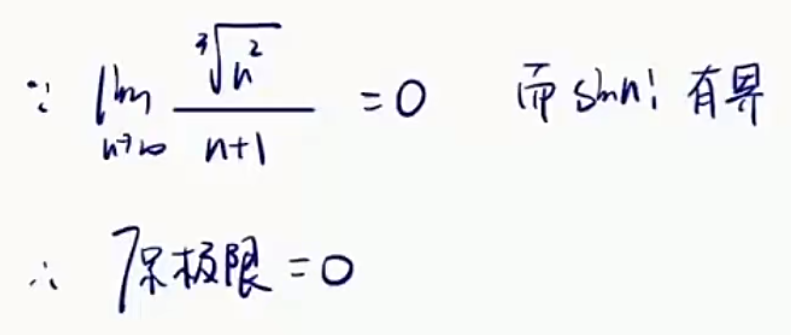 ∵ lim n→∞ ∛n² / n+1 = 0 而 sin n! 有界
∴ 原极限 = 0